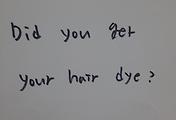 Did you get
your hair dye?